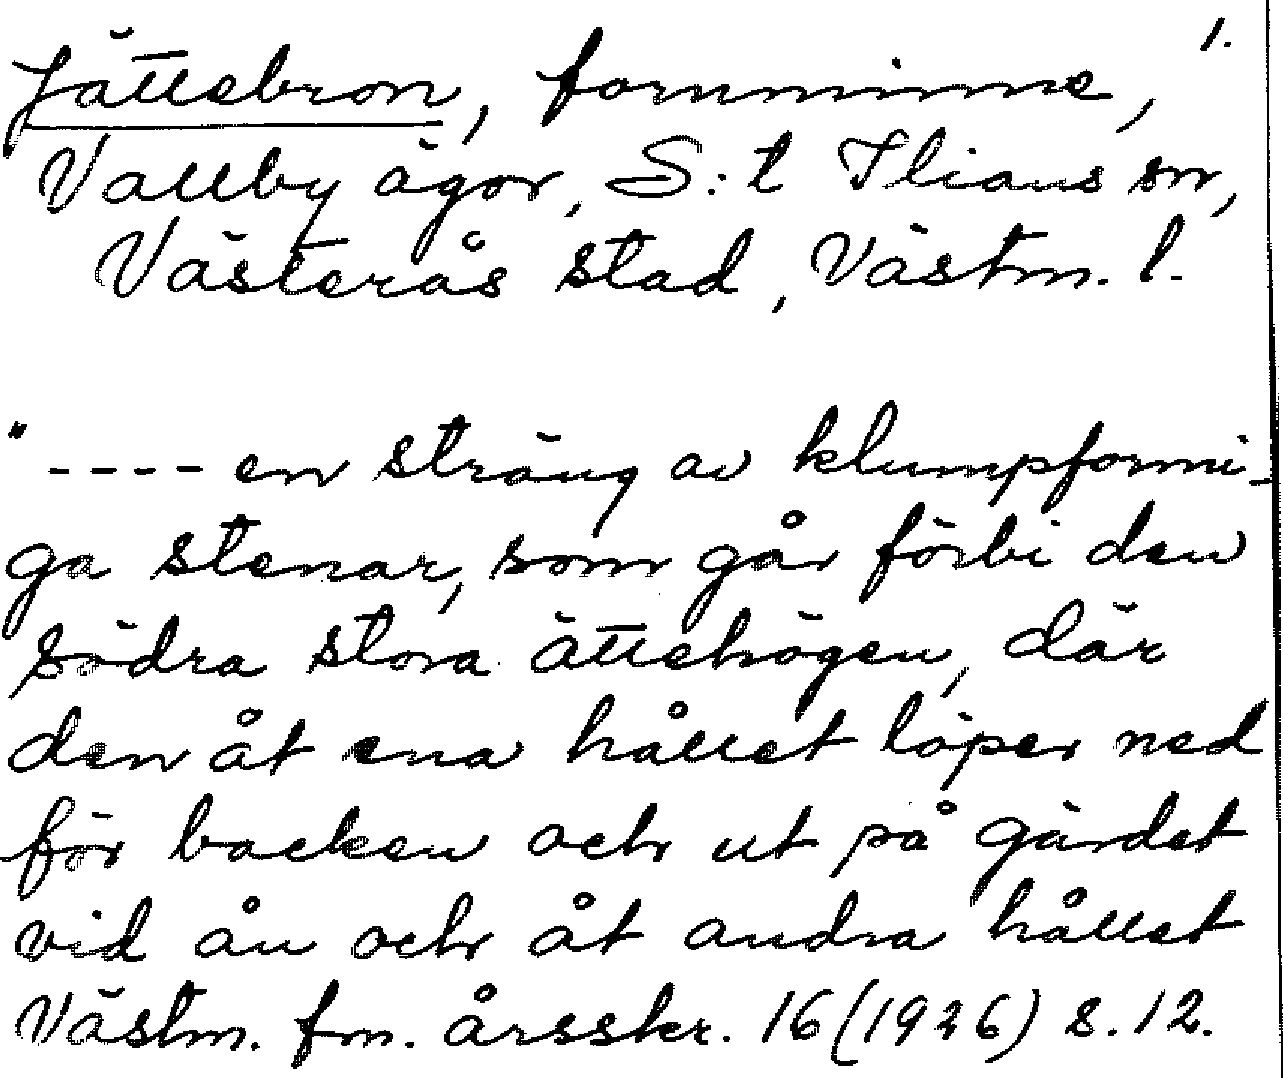 1.
Jättebron, fornminne,
Vallby ägor, S:t Ilians sn,
Västerås stad, Västm. l.
"---- en sträng av klumpformi-
ga stenar, som går förbi den
södra stora ättehögen, där
den åt ena hållet löper ned
för backen och ut på gärdet
vid ån och åt andra hållet
Västm. fm. årsskr. 16 (1926) s. 12.